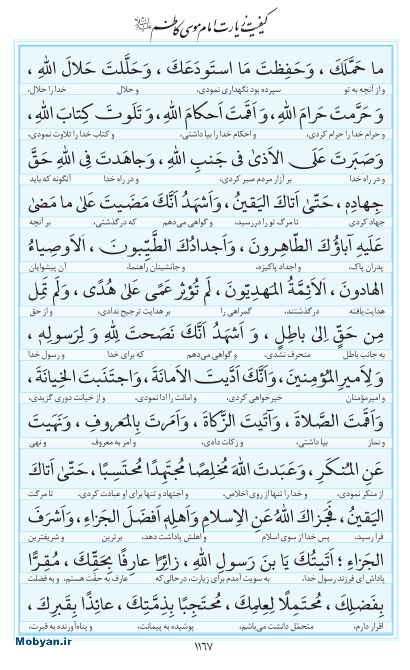 کیفیت زیارت امام موسی کاظم علیه‌السلام
ما حَمَّلَكَ ، وَحَفِظتَ مَا استَودَعَكَ ، وَحَلَّلتَ حَلالَ اللهِ ،
و از آنچه به تو سپرده بود نگهداری نمودی، و حلال خدا را حلال،
وَ حَرَّمتَ حَرامَ اللهِ، وَ اَقَمتَ اَحكامَ اللهِ ، وَ تَلَوتَ كِتابَ اللهِ،
و حرام خدا را حرام کردی، و احکام خدا را بپا داشتی، و کتاب خدا را تلاوت نمودی،
وَ صَبَرتَ عَلَى الاَذىٰ فى جَنبِ اللهِ ، وَ جاهَدتَ فِى اللهِ حَقَّ
و در راه خدا بر آزار مردم صبر کردی، و در راه خدا آنگونه که باید
جِهادِهِ، حَتّىٰ اَتاكَ اليَقينُ، وَاَشهَدُ اَنَّكَ مَضَيتَ عَلىٰ ما مَضىٰ
جهاد کردی تا مرگ تو را دررسید، و گواهی می‌دهم که درگذشتی، بر آنچه
عَلَيهِ آباؤُكَ الطّاهِرونَ، وَ اَجدادُكَ الطَّيِّبونَ ، الاَوصِياءُ
پدران پاک، و اجداد پاکیزه، و جانشینان راهنما، آن پیشوایان
الهادونَ ، الاَئِمَّةُ المَهدِيّونَ ، لَم تُؤثِر عَمًى عَلىٰ هُدًى ، وَ لَم تَمِل
هدایت‌یافته درگذشتند، گمراهی را بر هدایت ترجیح ندادی، و از حق
مِن حَقٍّ اِلىٰ باطِلٍ ، وَ اَشهَدُ اَنَّكَ نَصَحتَ لِلهِ وَ لِرَسولِهِ ،
به جانب باطل منحرف نشدی، و گواهی می‌دهم که برای خدا و رسول خدا
وَ لِاَميرِ المُؤمِنينَ، وَ اَنَّكَ اَدَّيتَ الاَمانَةَ، وَ اجتَنَبتَ الخِيانَةَ،
و امیرمؤمنان خیرخواهی کردی، و امانت را ادا نمودی، و از خیانت دوری گزیدی،
وَ اَقَمتَ الصَّلاةَ ، وَ آتَيتَ الزَّكاةَ ، وَ اَمَرتَ بِالمَعروفِ ، وَ نَهَيتَ
و نماز بپا داشتی، و زکات دادی، و امر به معروف و نهی
عَنِ المُنكَرِ ، وَ عَبَدتَ اللهَ مُخلِصًا مُجتَهِدًا مُحتَسِبًا، حَتّىٰ اَتاكَ
از منکر نمودی، و خدا را تنها از روی اخلاص، و اجتهاد و تنها برای او عبادت کردی، تا مرگت
اليَقينُ، فَجَزاكَ اللهُ عَنِ الاِسلامِ وَ اَهلِهِ اَفضَلَ الجَزاءِ، وَ اَشرَفَ
فرا رسید، پس خدا از سوی اسلام و اهلش پاداشت دهد، برترین و شریفترین
الجَزاءِ ؛ اَتَيتُكَ يَا بنَ رَسولِ اللهِ ، زائِرًا عارِفًا بِحَقِّكَ ، مُقِرًّا
پاداش ای فرزند رسول خدا، به سویت آمدم برای زیارت، درحالی‌که عارف به حقت هستم، و به فضلت
بِفَضلِكَ ، مُحتَمِلًا لِعِلمِكَ ، مُحتَجِبًا بِذِمَّتِكَ ، عائِذًا بِقَبرِكَ ،
اقرار دارم، متحمّل دانشت می‌باشم، پوشیده به پیمانت، و پناه‌آورنده به قبرت،
۱۱۶۷
Mobyan.ir